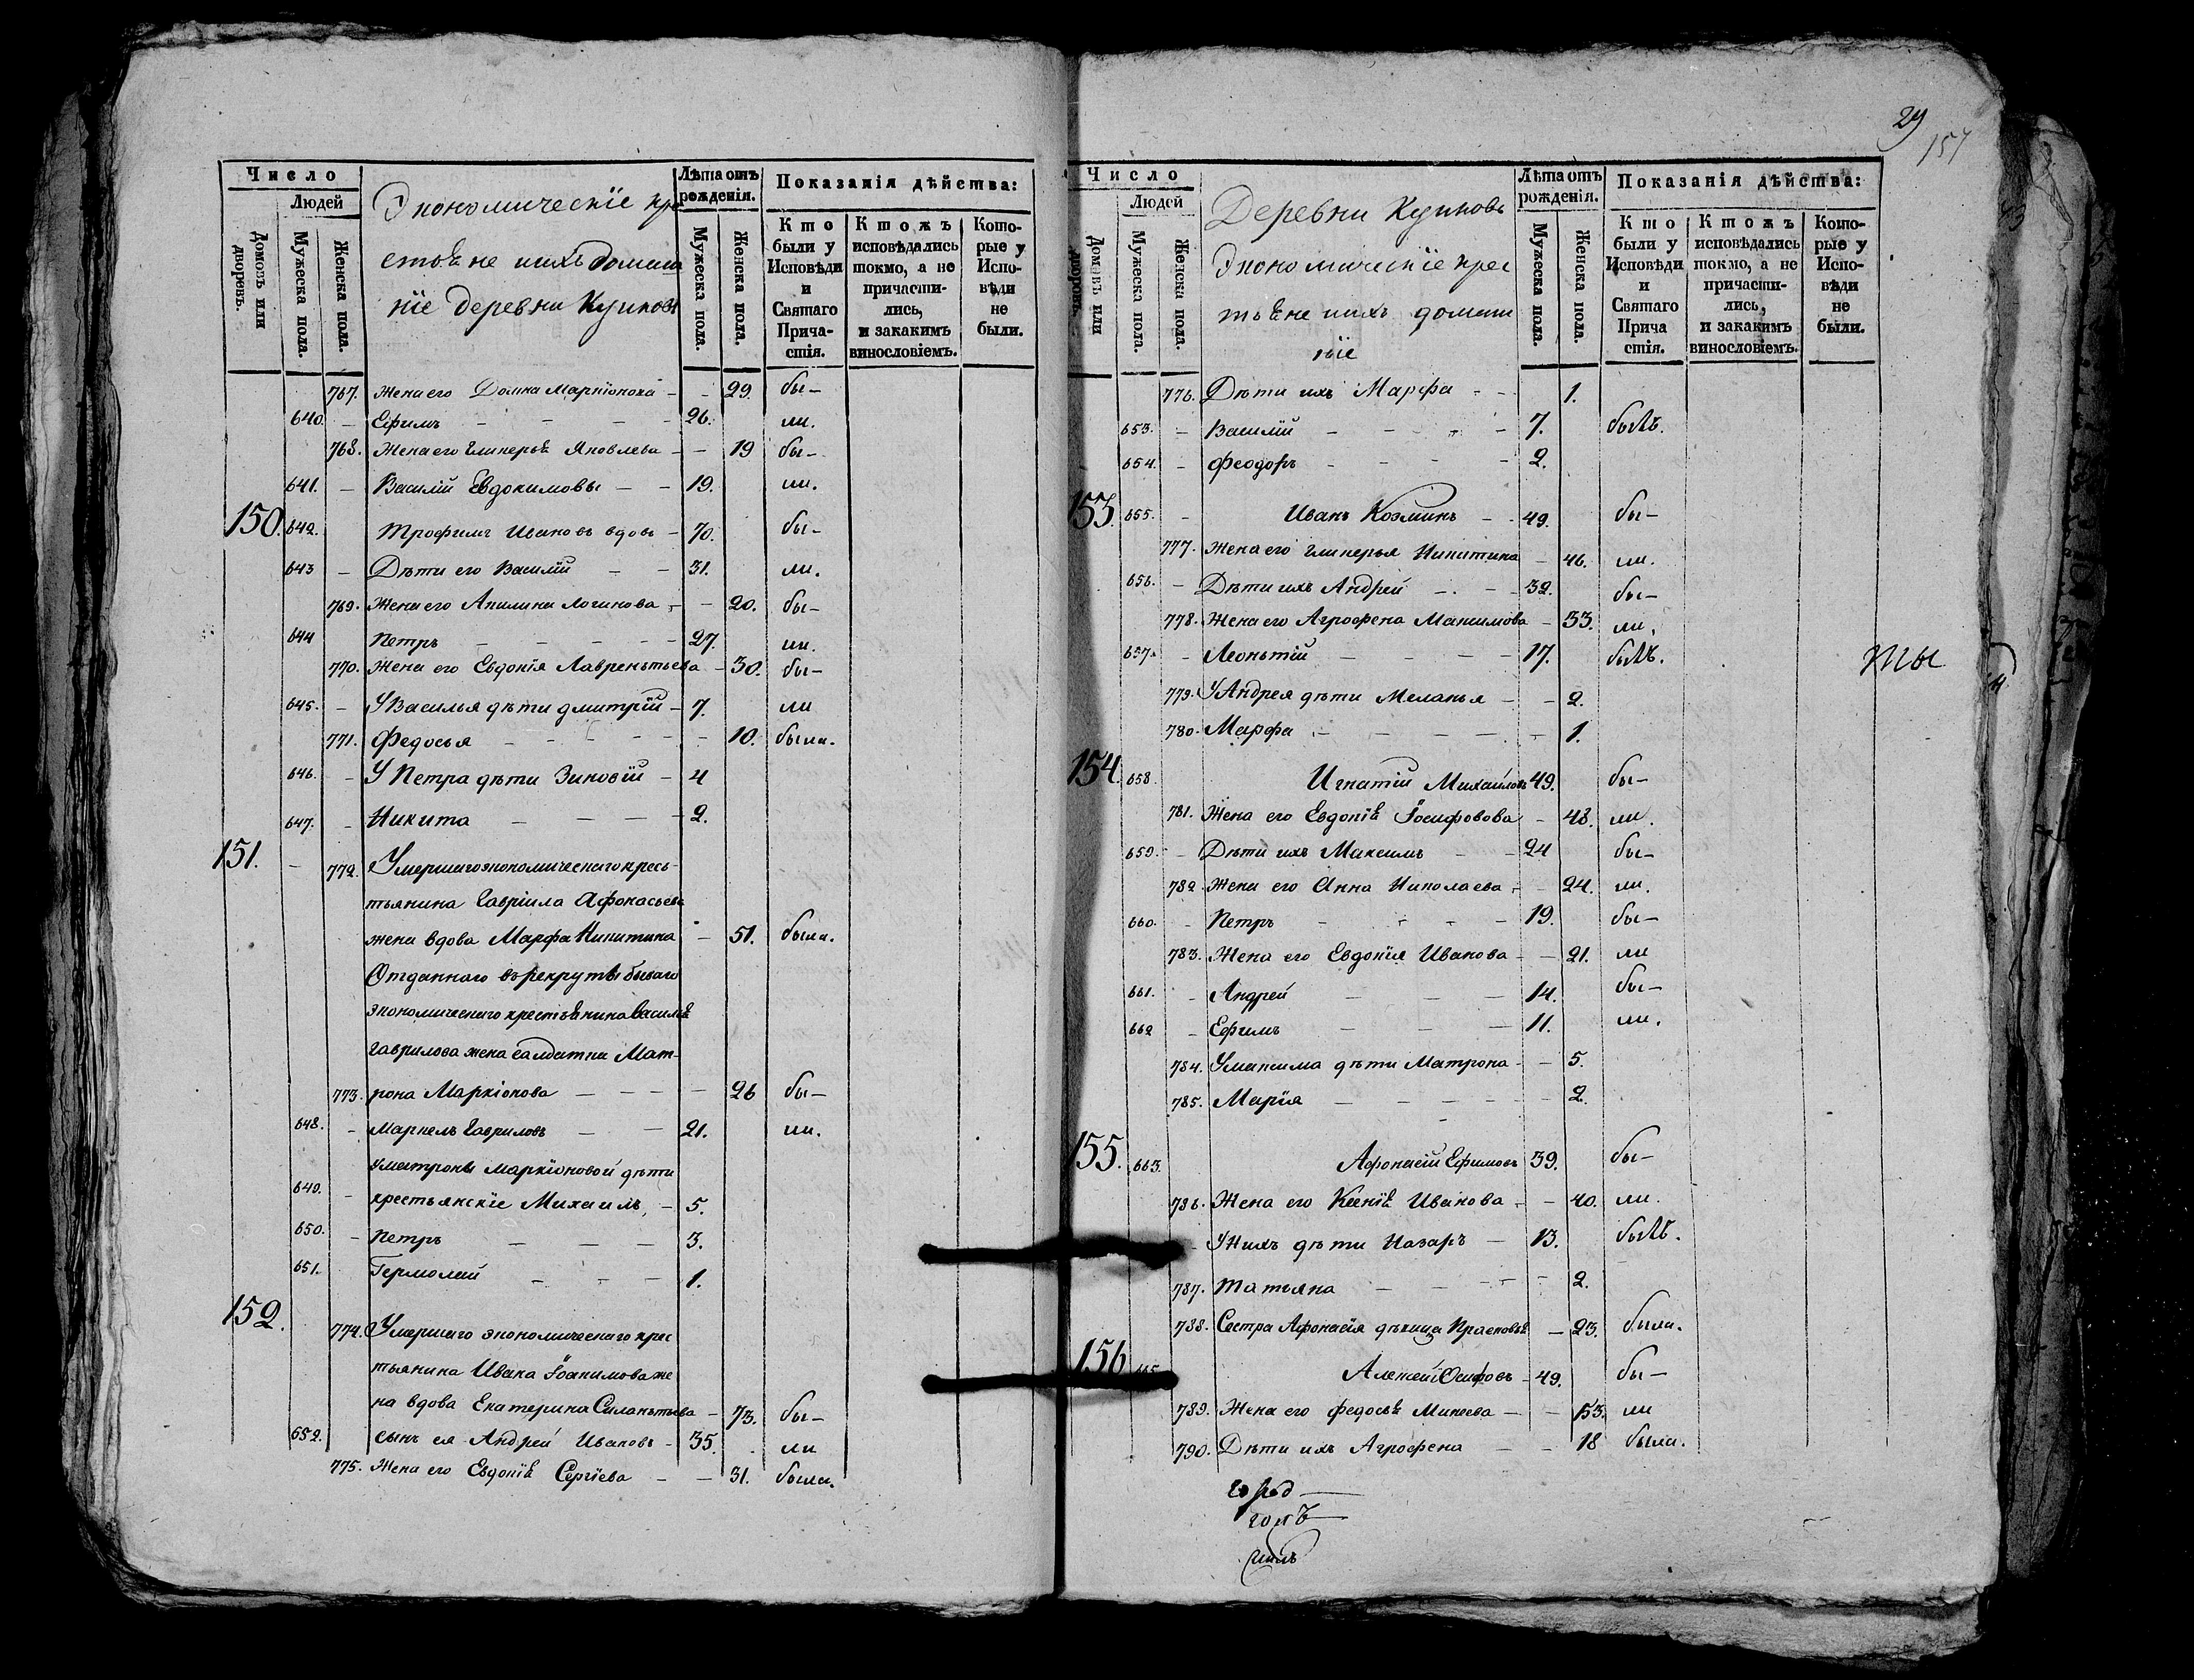 Число
Людей
Домовъ или дворовъ.
Мужеска пола.
Женска пола.
Экономическїе кре
стьѣне ихъ домаш
нїе деревни
Лѣта отъ рожденїя.
Мужеска пола.
Женска пола.
Показанїя дѣйства:
Кто были у Исповѣди и Святаго Прича- стїя.
Ктожъ исповѣдались токмо, а не причасти- лись, и закакимъ винословїемъ.
Кото- рые у Испо- вѣди не были.
767. Жена его Домна - - 29. бы-
640. - Ефимъ - - - - 26. ли.
768. Жена его Гликерьѣ Яковлева - - 19 бы-
641. - Василїй Евдокимовы - - 19. ли.
150. 642. - Трофимъ Ивановъ вдовъ - 70. бы-
643 - Дѣти его Василїй - - 31. ли.
769. Жена его Акилина Логинова - - 20. бы-
644 Петръ - - - - - 27. ли.
770. Жена его Евдокїя Лаврентьева - 30. бы-
645. - У Василья дѣти Дмитрїй - 7. ли
771. Федосья - - - - - - 10. была.
646. - У Петра дѣти Зиновїй - 4
647. - Никита - - - - 2.
151. - 772. Умершаго экономическаго кресь-
тьянина Гаврїила Афонасьева
жена вдова Марфа Никитина - 51. была.
Отданнаго въ рекруты бываго
экономическаго крестьѣнина Васильѣ
Гаврилова жена салдатка Мат-
773. рона Маркїонова - - - - 26 бы-
648. - Маркелъ Гавриловъ - - 21. ли.
У Матроны Маркїоновой дѣти
649. - крестьянскїе Михаилъ - 5.
650. - Петръ - - - 3.
651. Гермолай - - - 1.
152. 774. Умершаго экономическаго крес
тьянина Ивана Іоакимова же
на вдова Екатерина Силантьева - 73. бы-
652. сынъ ея Андрей Ивановъ - 35. ли
775. Жена его Евдокїѣ Сергїева - - 31. была.
29
157
Число
Людей
Домовъ или дворовъ.
Мужеска пола.
Женска пола.
Деревни
Экономическїе крес
тьѣне ихъ домаш
нїе
Лѣта отъ рожденїя.
Мужеска пола.
Женска пола.
Показанїя дѣйства:
Кто были у Исповѣди и Святаго Прича стїя.
Ктожъ исповѣдались токмо, а не причасти- лись, и закакимъ винословїемъ.
Кото- рые у Испо- вѣди не были.
776. Дѣти ихъ Марфа - - 1.
653. - Василїй - - - - 7. былъ.
654. - Феодоръ - - - - 2.
153. 655. - Иванъ Козминъ - - 49. бы-
777. Жена его Гликерья Никитина - 46. ли.
656. - Дѣти ихъ Андрей - - - 32. бы-
778. Жена его Агрофена Максимова - 33. ли.
657. - Леонтїй - - - - 17. былъ.
779. У Андрея дѣти Меланья - - 2.
780. Марфа - - - - - 1.
154. 658. Игнатїй Михайловъ 49. бы-
781. Жена его Евдокїѣ Іосифовова - 48. ли.
659. - Дѣти ихъ Максимъ - - 24 бы-
782. Жена его Анна Николаева - - 24. ли.
660. - Петръ - - - - 19. бы-
783. Жена его Евдокїя Иванова - - 21. ли
661. - Андрей - - - 14. бы-
662 - Ефимъ - - - 11. ли.
784. У Максима дѣти Матрона - - 5.
785. Марїя - - - - - - 2.
155. 663. Афонасїй Ефимовъ 39. бы-
786. Жена его Ксенїѣ Иванова - - 40. ли.
- У нихъ дѣти Назаръ - 13. былъ.
787. Татьяна - - - - - 2.
788. Сестра Афонасїя дѣвица Прасковьѣ - 23. была.
156 Алексей Осифовъ - 49. бы-
789. Жена его Федосьѣ Михеева - - 53. ли
790. Дѣти ихъ Агрофена - - 18 была.